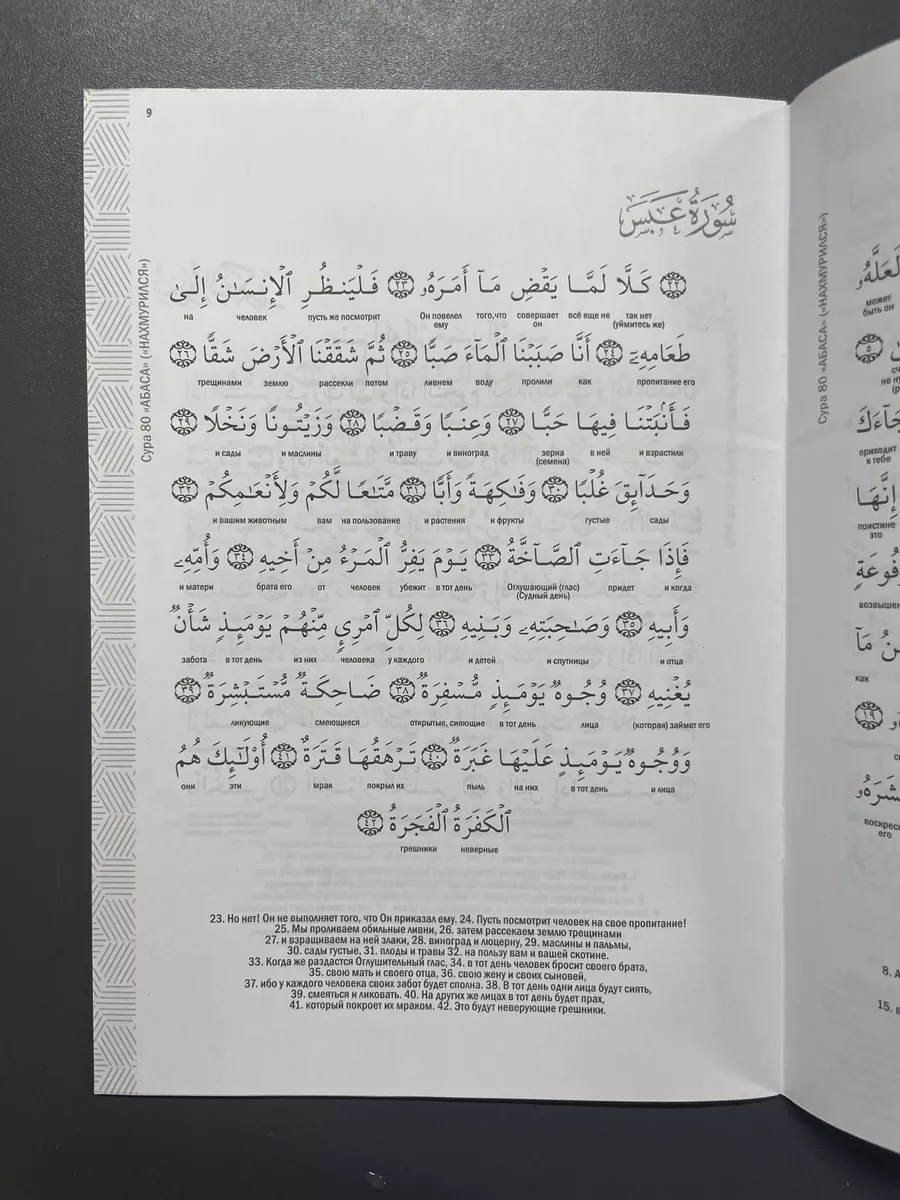 9
Сура 80 «АБАСА» («НАХМУРИЛСЯ»)
سُورَةُ عَبَسَ
٢٢ كَلَّا لَمَّا يَقۡضِ مَآ أَمَرَهُۥ ٢٣ فَلۡيَنظُرِ ٱلۡإِنسَٰنُ إِلَىٰ
так нет (уймитесь же) всё еще не совершает он того,что Он повелел ему пусть же посмотрит человек на
طَعَامِهِۦٓ ٢٤ أَنَّا صَبَبۡنَا ٱلۡمَآءَ صَبّٗا ٢٥ ثُمَّ شَقَقۡنَا ٱلۡأَرۡضَ شَقّٗا ٢٦
пропитание его как пролили воду ливнем потом рассекли землю трещинами
فَأَنۢبَتۡنَا فِيهَا حَبّٗا ٢٧ وَعِنَبٗا وَقَضۡبٗا ٢٨ وَزَيۡتُونٗا وَنَخۡلٗا ٢٩
и взрастили в ней зерна (семена) и виноград и траву и маслины и сады
وَحَدَآئِقَ غُلۡبٗا ٣٠ وَفَٰكِهَةٗ وَأَبّٗا ٣١ مَّتَٰعٗا لَّكُمۡ وَلِأَنۡعَٰمِكُمۡ ٣٢
сады густые и фрукты и растения на пользование вам и вашим животным
فَإِذَا جَآءَتِ ٱلصَّآخَّةُ ٣٣ يَوۡمَ يَفِرُّ ٱلۡمَرۡءُ مِنۡ أَخِيهِ ٣٤ وَأُمِّهِۦ
и когда придет Оглушающий (глас) (Судный день) в тот день убежит человек от брата его и матери
وَأَبِيهِ ٣٥ وَصَٰحِبَتِهِۦ وَبَنِيهِ ٣٦ لِكُلِّ ٱمۡرِيٕٖ مِّنۡهُمۡ يَوۡمَئِذٖ شَأۡنٞ
и отца и спутницы и детей у каждого человека из них в тот день забота
يُغۡنِيهِ ٣٧ وُجُوهٞ يَوۡمَئِذٖ مُّسۡفِرَةٞ ٣٨ ضَاحِكَةٞ مُّسۡتَبۡشِرَةٞ ٣٩
(которая) займет его лица в тот день открытые, сияющие смеющиеся ликующие
وَوُجُوهٞ يَوۡمَئِذٍ عَلَيۡهَا غَبَرَةٞ ٤٠ تَرۡهَقُهَا قَتَرَةٌ ٤١ أُوْلَٰٓئِكَ هُمُ
и лица в тот день на них пыль покрыл их мрак эти они
ٱلۡكَفَرَةُ ٱلۡفَجَرَةُ ٤٢
неверные грешники
23. Но нет! Он не выполняет того, что Он приказал ему. 24. Пусть посмотрит человек на свое пропитание!
25. Мы проливаем обильные ливни, 26. затем рассекаем землю трещинами
27. и взращиваем на ней злаки, 28. виноград и люцерну, 29. маслины и пальмы,
30. сады густые, 31. плоды и травы 32. на пользу вам и вашей скотине.
33. Когда же раздастся Оглушительный глас, 34. в тот день человек бросит своего брата,
35. свою мать и своего отца, 36. свою жену и своих сыновей,
37. ибо у каждого человека своих забот будет сполна. 38. В тот день одни лица будут сиять,
39. смеяться и ликовать. 40. На других же лицах в тот день будет прах,
41. который покроет их мраком. 42. Это будут неверующие грешники.
Сура 80 «АБАСА» («НАХМУРИЛСЯ»)
لَعَلَّهُۥ
может быть он
٥
جَآءَكَ
приходит к тебе
إِنَّهَا
поистине это
возвышен
مَآ
как
١٩
воскрес
его
8.
15.